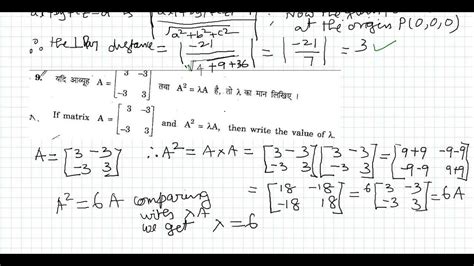 a²+b²+c²
at the origin P(0,0,0)
∴ the ⊥ar distance = |-21 / √4+9+36| = |-21 / 7| = 3 ✓
9. यदि आव्यूह A = [3 -3 -3 3] तथा A² = λA है, तो λ का मान लिखिए ।
If matrix A = [3 -3 -3 3] and A² = λA, then write the value of λ.
A = [3 -3 -3 3] ∴ A² = A × A = [3 -3 -3 3] [3 -3 -3 3] = [9+9 -9-9 -9-9 9+9]
= [18 -18 -18 18] = 6 [3 -3 -3 3] = 6A
A² = 6A comparing
with λA
we get λ = 6